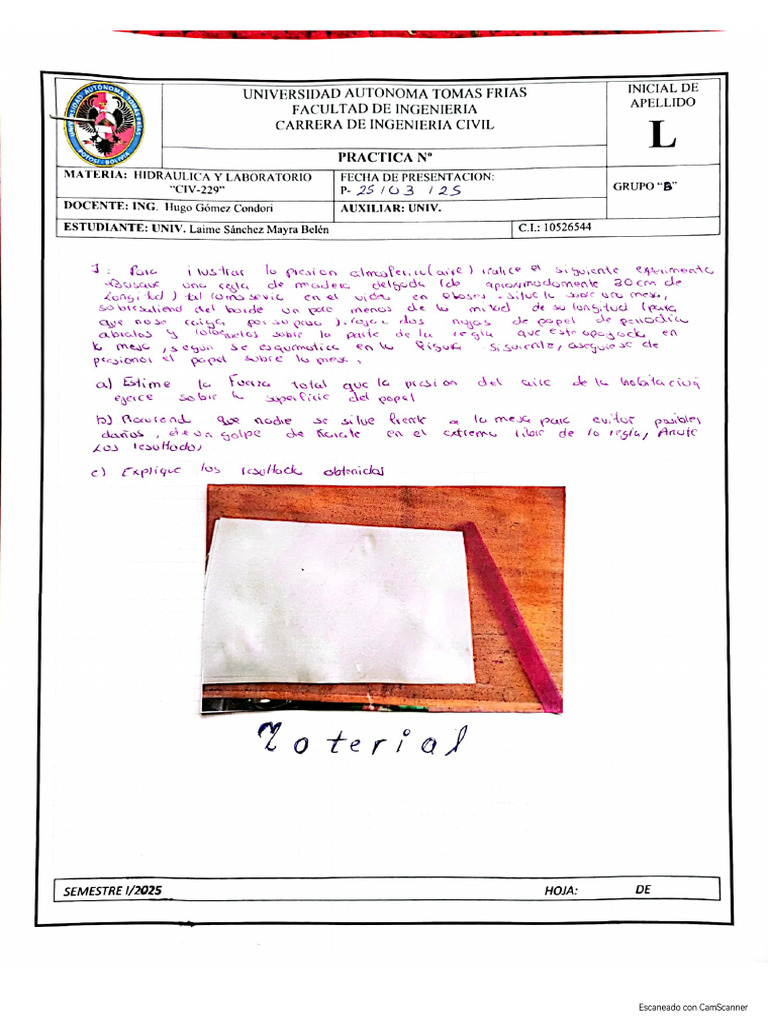 UNIVERSIDAD AUTONOMA TOMAS FRIAS
FACULTAD DE INGENIERIA
CARRERA DE INGENIERIA CIVIL
INICIAL DE
APELLIDO
L
UNIVERSIDAD AUTÓNOMA TOMÁS FRÍAS
POTOSÍ - BOLIVIA
PRACTICA Nº
MATERIA: HIDRAULICA Y LABORATORIO
"CIV-229"
FECHA DE PRESENTACION:
P- 25/03/25
GRUPO "B"
DOCENTE: ING. Hugo Gómez Condori
AUXILIAR: UNIV.
ESTUDIANTE: UNIV. Laime Sánchez Mayra Belén
C.I.: 10526544
1: Para ilustrar la presion atmosferica (aire) realice el siguiente experimento
Busque una regla de madera delgada (de aproximadamente 30 cm de
Longitud) tal como seria en el vida en . situe la sobre una mesa,
sobresaliend del borde un poco menos de la mitad de su longitud (para
que no se caiga por su peso). dos de papel de periodico
abiertos y sobre la parte de la regla que este apoyada en
la mesa, segun se esquematica en la figura siguiente, asegurese de
presionar el papel sobre la mesa.
a) Estime la Fuerza total que la presion del aire de la habitación
ejerce sobre la superficie del papel
b) que nadie se situe frente a la mesa para evitar posibles
daños, de un golpe de Karate en el extremo libre de la regla, Anote
Los resultados
c) Explique los resultado obtenidos
Material
SEMESTRE I/2025
HOJA: DE
Escaneado con CamScanner